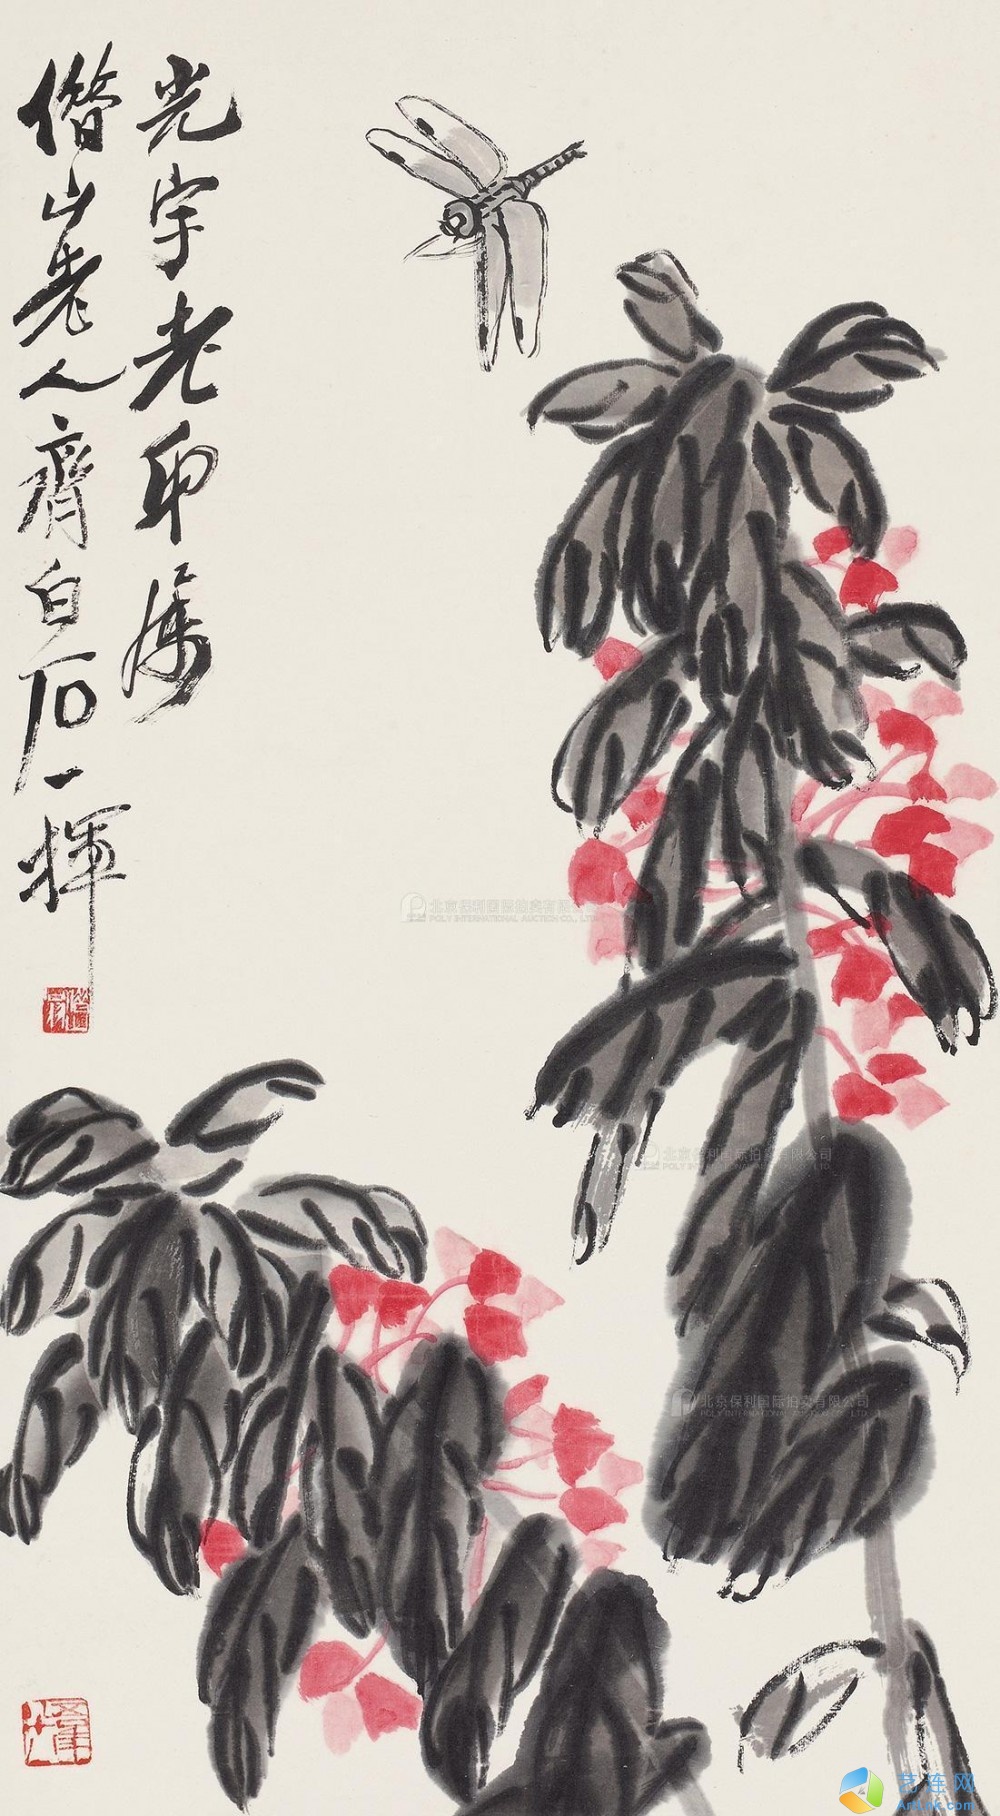 光宇老印属
借山老人齊白石一揮
北京保利国际拍卖有限公司
POLY INTERNATIONAL AUCTION CO., LTD.
北京保利国际拍卖有限公司
POLY INTERNATIONAL AUCTION CO., LTD.
北京保利国际拍卖有限公司
POLY INTERNATIONAL AUCTION CO., LTD.
艺连网